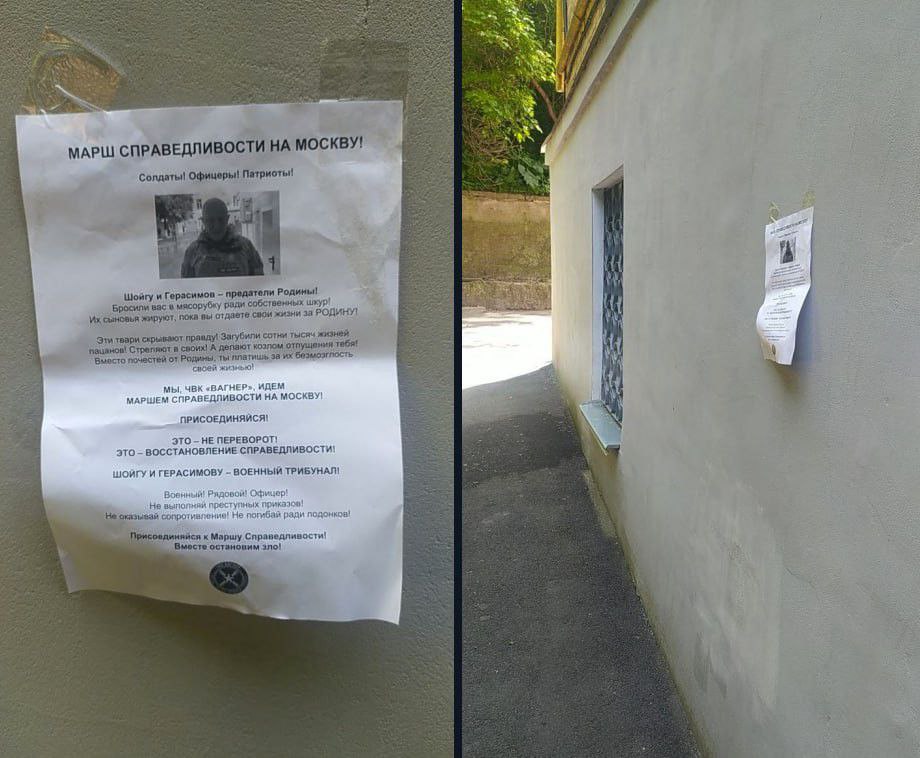 МАРШ СПРАВЕДЛИВОСТИ НА МОСКВУ!
Солдаты! Офицеры! Патриоты!
Шойгу и Герасимов – предатели Родины!
Бросили вас в мясорубку ради собственных шкур!
Их сыновья жируют, пока вы отдаете свои жизни за РОДИНУ!
Эти твари скрывают правду! Загубили сотни тысяч жизней
пацанов! Стреляют в своих! А делают козлом отпущения тебя!
Вместо почестей от Родины, ты платишь за их безмозглость
своей жизнью!
МЫ, ЧВК «ВАГНЕР», ИДЕМ
МАРШЕМ СПРАВЕДЛИВОСТИ НА МОСКВУ!
ПРИСОЕДИНЯЙСЯ!
ЭТО – НЕ ПЕРЕВОРОТ!
ЭТО – ВОССТАНОВЛЕНИЕ СПРАВЕДЛИВОСТИ!
ШОЙГУ И ГЕРАСИМОВУ – ВОЕННЫЙ ТРИБУНАЛ!
Военный! Рядовой! Офицер!
Не выполняй преступных приказов!
Не оказывай сопротивление! Не погибай ради подонков!
Присоединяйся к Маршу Справедливости!
Вместе остановим зло!